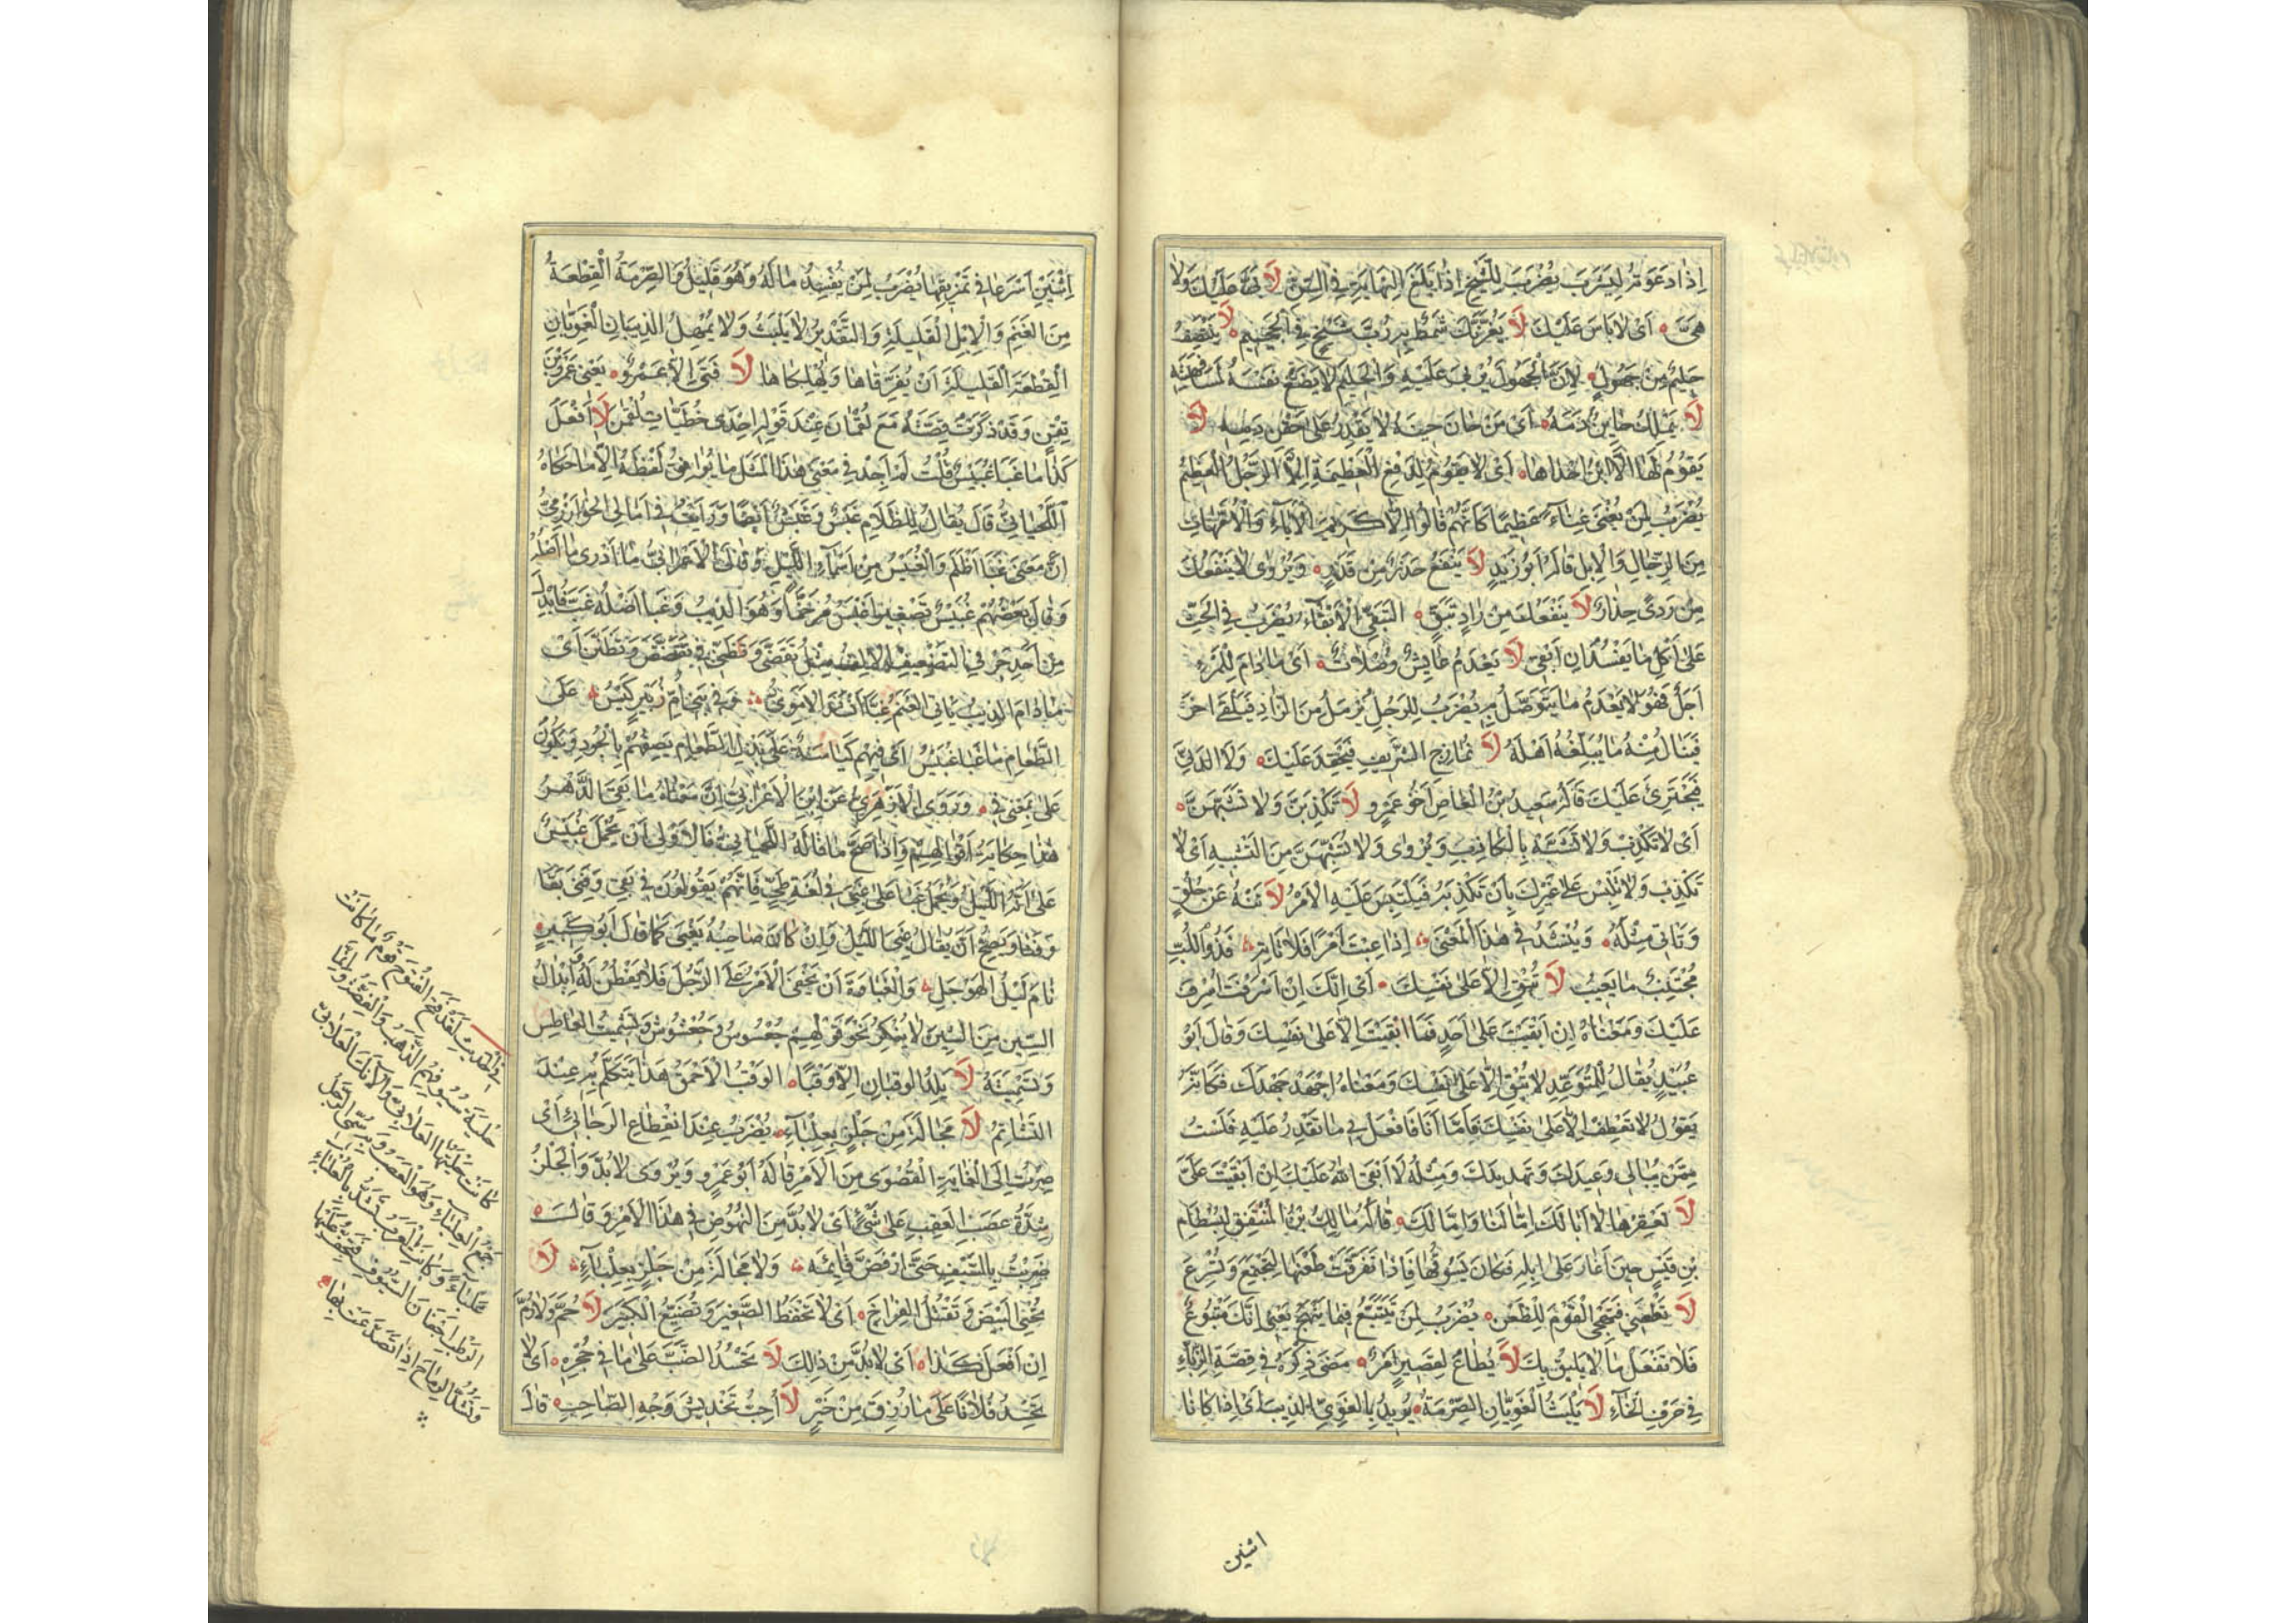 اِذَا دَعَوْتَهُ لِيَشْرَبَ يُضْرَبُ لِلشَّيْخِ اِذَا بَلَغَ النِّهَايَةَ فِي السِّنِّ لَا بُقْيَا عَلَيْكَ وَلَا
هَىَّ اَىْ لَا بَاسَ عَلَيْكَ لَا يَغُرَّنَّكَ شَمَطٌ بِهِ رُبَّ شَيْخٍ فِى الْجَحِيمِ لَا يَنْتَصِفُ
حَلِيْمٌ مِنْ جَهُوْلٍ لِاَنَّ الْجَهُوْلَ يُرْبِى عَلَيْهِ وَالْحَلِيْمُ لَا يَضَعُ نَفْسَهُ لِمُسَافَهَتِهِ
لَا يَمْلِكُ حَايِنٌ دَمَهُ اَىْ مَنْ حَانَ حِيْنُهُ لَا يَقْدِرُ عَلَى حَقْنِ دَمِهِ لَا
يَقُوْمُ لَهَا اِلَّا ابْنُ اِحْدَاهَا اَىْ لَا يَقُوْمُ لِدَفْعِ الْعَظِيْمَةِ اِلَّا الرَّجُلُ الْعَظِيْمُ
يُضْرَبُ لِمَنْ يُغْنِى غَنَاءً عَظِيْمًا كَاَنَّهُمْ قَالُوْا اِلَّا كَرِيْمُ الْاٰبَاءِ وَالْاُمَّهَاتِ
مِنَ الرِّجَالِ وَالْاِبِلِ قَالَهُ اَبُوْ زَيْدٍ لَا يَنْفَعُ حَذَرٌ مِنْ قَدَرٍ وَيُرْوٰى لَا يَنْفَعُكَ
مِنْ رَدِىٍّ حِذَارٌ لَا يَنْفَعُكَ مِنْ زَادٍ تَبَقٍّ التَّبَقِّى الْاِبْقَاءُ يُضْرَبُ فِى الْحَثِّ
عَلٰى اَكْلِ مَا يَفْسُدُ اِنْ اُبْقِىَ لَا يَعْدَمُ عَايِشٌ وَصْلَاتٌ اَىْ مَا دَامَ لِلْمَرْءِ
اَجَلٌ فَهُوَ لَا يَعْدَمُ مَا يَتَوَصَّلُ بِهِ يُضْرَبُ لِلرَّجُلِ يُرْمِلُ مِنَ الزَّادِ فَيَلْقٰى اٰخَرَ
فَيَنَالُ مِنْهُ مَا يُبَلِّغُهُ اَهْلَهُ لَا تُمَازِحِ الشَّرِيْفَ فَيَحْقِدَ عَلَيْكَ وَلَا الدَّنِىَّ
فَيَجْتَرِئَ عَلَيْكَ قَالَهُ سَعِيْدُ بْنُ الْعَاصِ اَخُوْ عَمْرٍو لَا تَكْذِبَنَّ وَلَا تَشَبَّهَنَّ
اَىْ لَا تَكْذِبْ وَلَا تَشَبَّهْ بِالْكَاذِبِ وَيُرْوٰى وَلَا تُشَبِّهَنَّ مِنَ التَّشْبِيْهِ اَىْ لَا
تَكْذِبْ وَلَا تُلَبِّسْ عَلٰى غَيْرِكَ بِاَنْ تَكْذِبَهُ فَيَلْتَبِسَ عَلَيْهِ الْاَمْرُ لَا تَنْهَ عَنْ خُلُقٍ
وَتَاْتِىَ مِثْلَهُ وَيُنْشَدُ فِى هٰذَا الْمَعْنٰى اِذَا عِبْتَ اَمْرًا فَلَا تَاْتِهِ فَذُو اللُّبِّ
مُجْتَنِبٌ مَا يَعِيْبُ لَا تُبْقِ اِلَّا عَلٰى نَفْسِكَ اَىْ اِنَّكَ اِنْ اَسْرَفْتَ اُسْرِفَ
عَلَيْكَ وَمَعْنَاهُ اِنْ اَبْقَيْتَ عَلٰى اَحَدٍ فَمَا اَبْقَيْتَ اِلَّا عَلٰى نَفْسِكَ وَقَالَ اَبُوْ
عُبَيْدٍ يُقَالُ لِلْمُتَوَعِّدِ لَا تُبْقِ اِلَّا عَلٰى نَفْسِكَ وَمَعْنَاهُ اِجْهَدْ جَهْدَكَ فَكَاَنَّهُ
يَقُوْلُ لَا تَعْطِفْ اِلَّا عَلٰى نَفْسِكَ فَاَمَّا اَنَا فَافْعَلْ بِى مَا تَقْدِرُ عَلَيْهِ فَلَسْتُ
مِمَّنْ يُبَالِى وَعِيْدَكَ وَتَهْدِيْدَكَ وَمِثْلُهُ لَا اَبْقَى اللهُ عَلَيْكَ اِنْ اَبْقَيْتَ عَلَىَّ
لَا تَعْقِرْهَا لَا اَبَا لَكَ اِمَّا لَنَا وَاِمَّا لَكَ قَالَهُ مَالِكُ بْنُ الْمُنْتَفِقِ لِبِسْطَامِ
بْنِ قَيْسٍ حِيْنَ اَغَارَ عَلٰى اِبِلِهِ فَكَانَ يَسُوْقُهَا فَاِذَا تَفَرَّقَتْ طَعَنَهَا لِتَجْتَمِعَ وَتُسْرِعَ
لَا تَظْعَنِى فَتُهَيِّجِى الْقَوْمَ لِلظَّعْنِ يُضْرَبُ لِمَنْ يُتَّبَعُ فِيْمَا يَنْهَجُ يَعْنِى اِنَّكَ مَتْبُوْعٌ
فَلَا تَفْعَلْ مَا لَا يَلِيْقُ بِكَ لَا يُطَاعُ لِقَصِيْرٍ اَمْرٌ مَضٰى ذِكْرُهُ فِى قِصَّةِ الزَّبَّاءِ
فِى حَرْفِ الْخَاءِ لَا يُلْبِثُ الْغَوِيَّانِ الصِّرْمَةَ يُرِيْدُ بِالْغَوِىِّ الذِّيْبَ اَىْ اِذَا كَانَا
اثنين
اِثْنَيْنِ اَسْرَعَا فِى تَمْزِيْقِهَا يُضْرَبُ لِمَنْ يُفْسِدُ مَالَهُ وَهُوَ قَلِيْلٌ وَالصِّرْمَةُ الْقِطْعَةُ
مِنَ الْغَنَمِ وَالْاِبِلِ الْقَلِيْلَةِ وَالتَّقْدِيْرُ لَا يُلْبِثُ وَلَا يُمْهِلُ الذِّيْبَانِ الْغَوِيَّانِ
الْقِطْعَةَ الْقَلِيْلَةَ اَنْ يُفَرِّقَاهَا وَيُهْلِكَاهَا لَا فَتٰى اِلَّا عَمْرٌو يَعْنِى عَمْرَو بْنَ
تِقْنٍ وَقَدْ ذَكَرْتُ قِصَّتَهُ مَعَ لُقْمَانَ عِنْدَ قَوْلِهِ اِحْدٰى حُظَيَّاتِ لُقْمٰنَ لَا اَفْعَلُ
كَذَا مَا غَبَا غُبَيْسٌ قُلْتُ لَمْ اَجِدْ فِى مَعْنٰى هٰذَا الْمَثَلِ مَا يُوَافِقُ لَفْظَهُ اِلَّا مَا حَكَاهُ
اللِّحْيَانِىُّ قَالَ يُقَالُ لِلظَّلَامِ غَبَسٌ وَغَبَشٌ اَيْضًا وَرَاَيْتُ فِى اَمَالِى الْخُوَارَزْمِىِّ
اَنَّ مَعْنٰى غَبَا اَظْلَمَ وَالْغُبَيْسُ مِنْ اَسْمَاءِ اللَّيْلِ وَقَالَ الْاَعْرَابِىُّ مَا اَدْرِى مَا اَصْلُهُ
وَقَالَ بَعْضُهُمْ غُبَيْسٌ تَصْغِيْرُ اَغْبَسَ مُرَخَّمًا وَهُوَ الذِّيْبُ وَغَبَا اَصْلُهُ غَبَّ فَاَبْدَلَ
مِنْ اَحَدِ حَرْفَىِ التَّضْعِيْفِ الْاَلِفَ مِثْلُ تَقَضَّى وَتَظَنَّى فِى تَقَضَّضَ وَتَظَنَّنَ اَىْ
مَا دَامَ الذِّيْبُ يَاْتِى الْغَنَمَ غِبًّا اَنْشَدَ الْاُمَوِىُّ وَفِى بَنِى اُمِّ زُبَيْرٍ كَيْسُ عَلَى
الطَّعَامِ مَا غَبَا غُبَيْسُ اَىْ فِيْهِمْ كِيَاسَةٌ عَلٰى بَذْلِ الطَّعَامِ يَصِفُهُمْ بِالْجُوْدِ وَيَكُوْنُ
عَلٰى بِمَعْنٰى فِى وَرَوَى الْاَزْهَرِىُّ عَنِ ابْنِ الْاَعْرَابِىِّ اَنَّ مَعْنَاهُ مَا بَقِىَ الدَّهْرُ
هٰذَا حِكَايَةُ اَقْوَالِهِمْ وَاِذَا صَحَّ مَا قَالَهُ اللِّحْيَانِىُّ فَالْاَوْلٰى اَنْ يُحْمَلَ غُبَيْسٌ
عَلٰى اَنَّهُ اللَّيْلُ وَيُحْمَلَ غَبَا عَلٰى غَبِىَ فِى لُغَةِ طَيٍّ فَاِنَّهُمْ يَقُوْلُوْنَ فِى بَقِىَ وَفَنِىَ بَقَا
وَفَنَا وَيَصِحُّ اَنْ يُقَالَ غَبِىَ اللَّيْلُ وَاِنْ كَانَ صَاحِبُهُ يَغْبٰى كَمَا قَالَ اَبُوْ كَبِيْرٍ
نَامَ لَيْلُ الْهَوْجَلِ وَالْغَبَاوَةُ اَنْ يَخْفَى الْاَمْرُ عَلَى الرَّجُلِ فَلَا يَفْطُنُ لَهُ وَاِبْدَالُ
السِّيْنِ مِنَ الشِّيْنِ لَا يُنْكَرُ نَحْوُ قَوْلِهِمْ جُعْسُوْسٌ وَجُعْشُوْشٌ وَتَشْمِيْتُ الْعَاطِسِ
وَتَسْمِيْتُهُ لَا يَلِدُ الْوَقْبَانِ اِلَّا وَقْبًا الْوَقْبُ الْاَحْمَقُ هٰذَا يُتَكَلَّمُ بِهِ عِنْدَ
التَّشَاتُمِ لَا مَحَالَةَ مِنْ جَلْزٍ بِعِلْبَاءٍ يُضْرَبُ عِنْدَ انْقِطَاعِ الرَّجَاءِ اَىْ
صِرْتُ اِلَى الْغَايَةِ الْقُصْوٰى مِنَ الْاَمْرِ قَالَهُ اَبُوْ عَمْرٍو وَيُرْوٰى لَا بُدَّ وَالْجَلْزُ
شِدَّةُ عَصَبِ الْعَقِبِ عَلٰى شَىْءٍ اَىْ لَا بُدَّ مِنَ النُّهُوْضِ فِى هٰذَا الْاَمْرِ وَقَالَ
ضَرَبْتُ بِالسَّيْفِ حَتَّى ارْفَضَّ قَائِمُهُ وَلَا مَحَالَةَ مِنْ جَلْزٍ بِعِلْبَاءٍ لَا
تُحْيِى الْبَيْضَ وَتَقْتُلُ الْفِرَاخَ اَىْ لَا تَحْفَظُ الصَّغِيْرَ وَتُضَيِّعُ الْكَبِيْرَ لَا حُمَّ وَلَا رُمَّ
اِنْ اَفْعَلْ كَذَا اَىْ لَا بُدَّ مِنْ ذٰلِكَ لَا تَحْسُدِ الضَّبَّ عَلٰى مَا فِى جُحْرِهِ اَىْ لَا
تَحْسُدْ فُلَانًا عَلٰى مَا رُزِقَ مِنْ خَيْرٍ لَا اُحِبُّ تَخْدِيْشَ وَجْهِ الصَّاحِبِ قَالَ
وَفِى الْحَدِيْثِ لَقَدْ فَتَحَ الْفُتُوْحَ قَوْمٌ مَا كَانَتْ
حِلْيَةُ سُيُوْفِهِمُ الذَّهَبَ وَالْفِضَّةَ وَاِنَّمَا
كَانَتْ حِلْيَتُهَا الْعَلَابِىَّ وَالْاٰنُكَ الْعَلَابِىُّ
جَمْعُ الْعِلْبَاءِ وَهُوَ الْعَصَبُ
وَكَانَتِ الْعَرَبُ تَشُدُّ بِالْعِلْبَاءِ
الرَّطْبِ اَجْفَانَ السُّيُوْفِ
وَتَشُدُّ الرِّمَاحَ اِذَا تَصَدَّعَتْ بِهَا